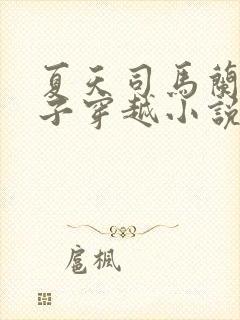 夏天司馬蘭
子穿越小說
扈楓